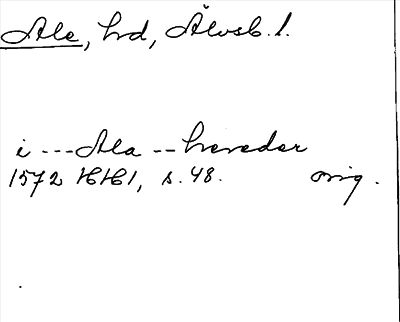 Ale, hd, Älvsb. l.
i --- Ala -- hereder
1572 HH1, s. 48. orig.